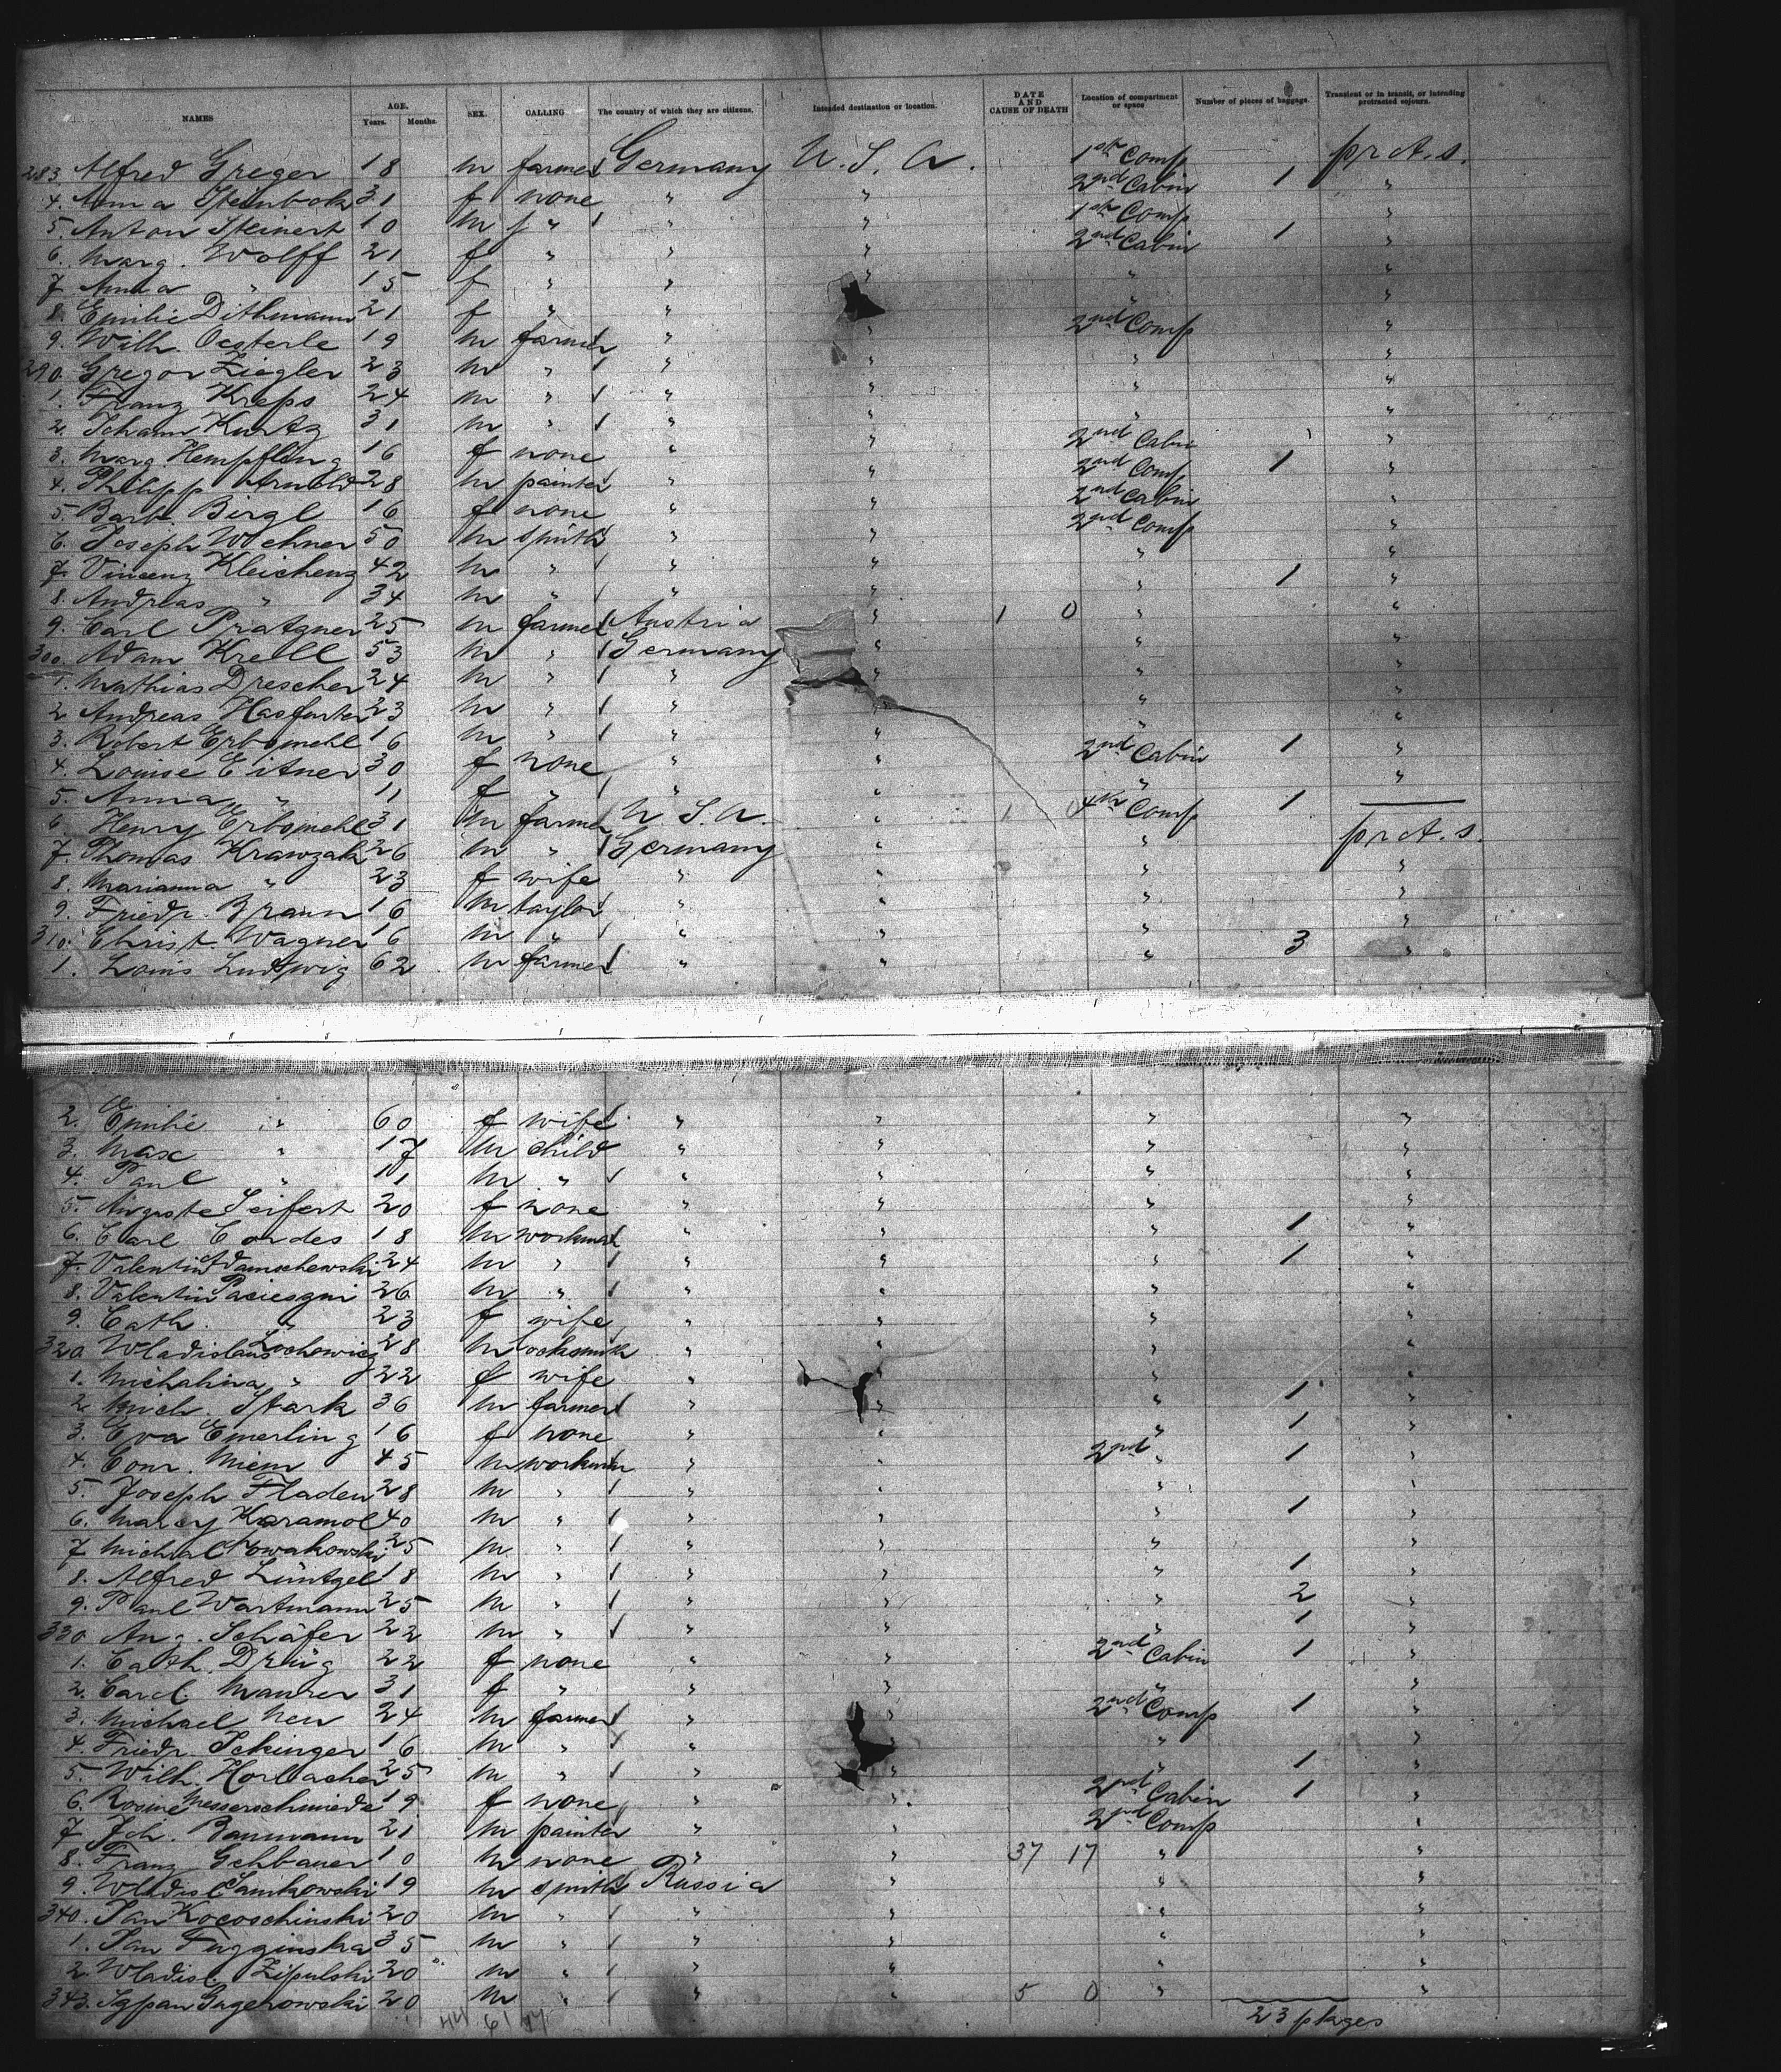 NAMES AGE. Years. Months. SEX. CALLING The country of which they are citizens. Intended destination or location. DATE AND CAUSE OF DEATH Location of compartment or space Number of pieces of baggage. Transient or in transit, or intending protracted sojourn.
283. Alfred Greger 18 m farmer Germany U. S. A. 1st Comp pr A. s.
4. Anna Steinbock 31 f none " " 2nd Cabin 1 "
5. Anton Steinert 10 m " " " 1st Comp "
6. Marg. Wolff 21 f " " " 2nd Cabin 1 "
7. Anna " 15 f " " " " "
8. Emilie Dithmann 21 f " " " "
9. Wilh. Oesterle 19 m farmer " " 2nd Comp "
290. Gregor Ziegler 23 m " " " " "
1. Franz Kreps 24 m " " " " "
2. Johann Kurtz 31 m " " " " "
3. Marg. Hempfling 16 f none " " 2nd Cabin "
4. Philipp Arnold 28 m painter " " 2nd Comp 1 "
5. Barb. Birgl 16 f none " " 2nd Cabin "
6. Joseph Wehner 50 m smith " " 2nd Comp "
7. Vincenz Kleichenz 42 m " " " " "
8. Andreas " 34 m " " " " 1 "
9. Carl Pratzner 25 m farmer Austria " 1 0 " "
300. Adam Krell 53 m " Germany " " "
1. Mathias Drescher 24 m " " " " "
2. Andreas Hasfurter 23 m " " " " "
3. Robert Erbsmehl 16 m " " " " "
4. Louise Eitner 30 f none " " 2nd Cabin 1 "
5. Anna " 11 f " " " " "
6. Henry Erbsmehl 31 m farmer U. S. A. " 1 0 4th Comp 1 —
7. Thomas Krawzak 26 m " Germany " " pr A. s.
8. Marianna " 23 f wife " " " "
9. Friedr. Braun 16 m taylor " " " "
310. Christ. Wagner 16 m " " " " "
1. Louis Ludwig 62 m farmer " " " 3 "
2. Emilie " 60 f wife " " " "
3. Max " 17 m child " " " "
4. Paul " 11 m " " " " "
5. Auguste Seifert 20 f none " " " "
6. Carl Cordes 18 m workman " " " 1 "
7. Valentin Adamschewski 24 m " " " " 1 "
8. Valentin 26 m " " " " "
9. Cath. " 23 f wife " " " "
320. Wladislaus Lochowicz 28 m locksmith " " " "
1. Michalina " 22 f wife " " "
2. Mich. Stark 36 m farmer " " " 1 "
3. Eva Emerling 16 f none " " " 1 "
4. Conr. Miem 45 m workman " " 2nd " 1 "
5. Joseph Fladen 28 m " " " " "
6. Marcy Karamol 40 m " " " " 1 "
7. Michael Nowakowski 25 m " " " " "
8. Alfred Lüntgel 18 m " " " " 1 "
9. Paul Wartmann 25 m " " " " 2 "
330. Aug. Schäfer 22 m " " " " 1 "
1. Cath. Drüg 22 f none " " 2nd Cabin 1 "
2. Carol. Maurer 31 f " " " " "
3. Michael Neu 24 m farmer " " 2nd Comp 1 "
4. Friedr. Sckinger 16 m " " " " "
5. Wilh. Horlacher 25 m " " " " 1 "
6. Rosine Messerschmiede 19 f none " " 2nd Cabin 1 "
7. Joh. Baumann 21 m painter " " 2nd Comp "
8. Franz Gehbauer 10 m none " " 37 17 " "
9. Wladisl. Samkowski 19 m smith Russia " " "
340. Jan Kocoschinski 20 m " " " " "
1. Jan 35 m " " " " "
2. Wladisl. Zipulski 20 m " " " " "
343. 20 m " " " 5 0 " "
23 plages